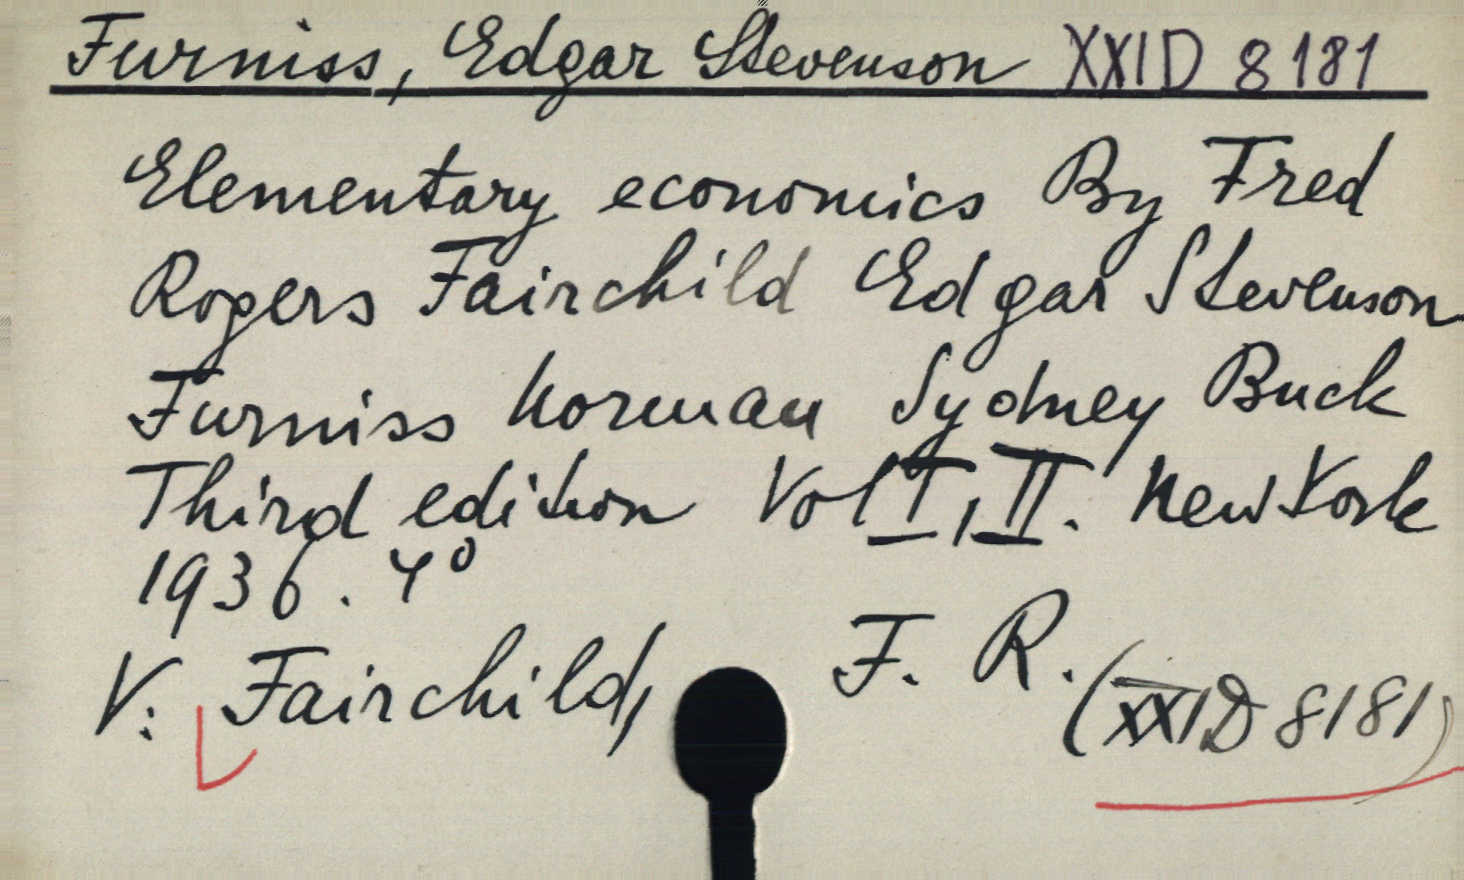 Furniss, Edgar Stevenson XXID 8181
Elementary economics By Fred
Rogers Fairchild Edgar Stevenson
Furniss Norman Sydney Buck
Third edition Vol I, II. New York
1936. 4°
V: Fairchild, F. R.
(XXID 8181)